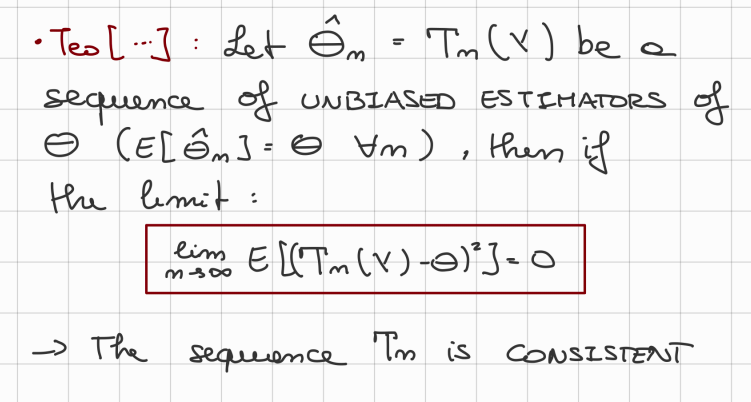 • Teo [...] : Let Θ̂n = Tn(Y) be a
sequence of UNBIASED ESTIMATORS of
Θ (E[Θ̂n] = Θ ∀n), then if
the limit :
lim n→∞ E[(Tn(Y)-Θ)²] = 0
→ The sequence Tn is CONSISTENT